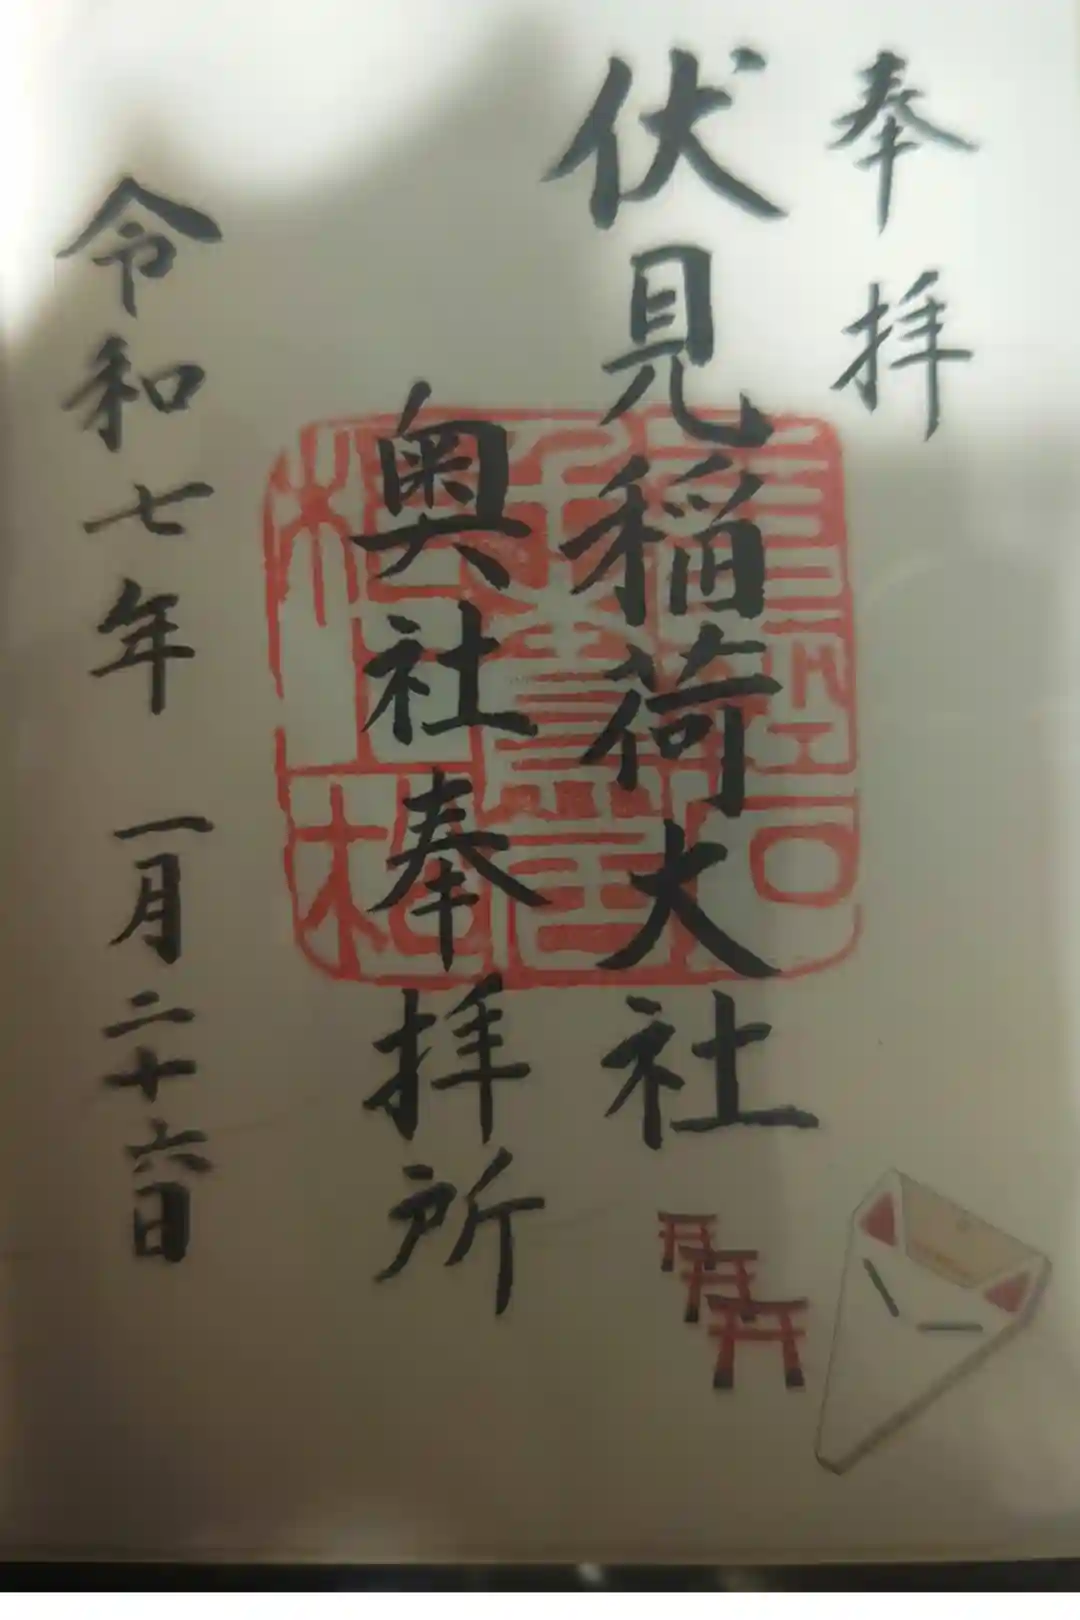 奉拝
伏見稲荷大社
奥社奉拝所
令和七年一月二十六日